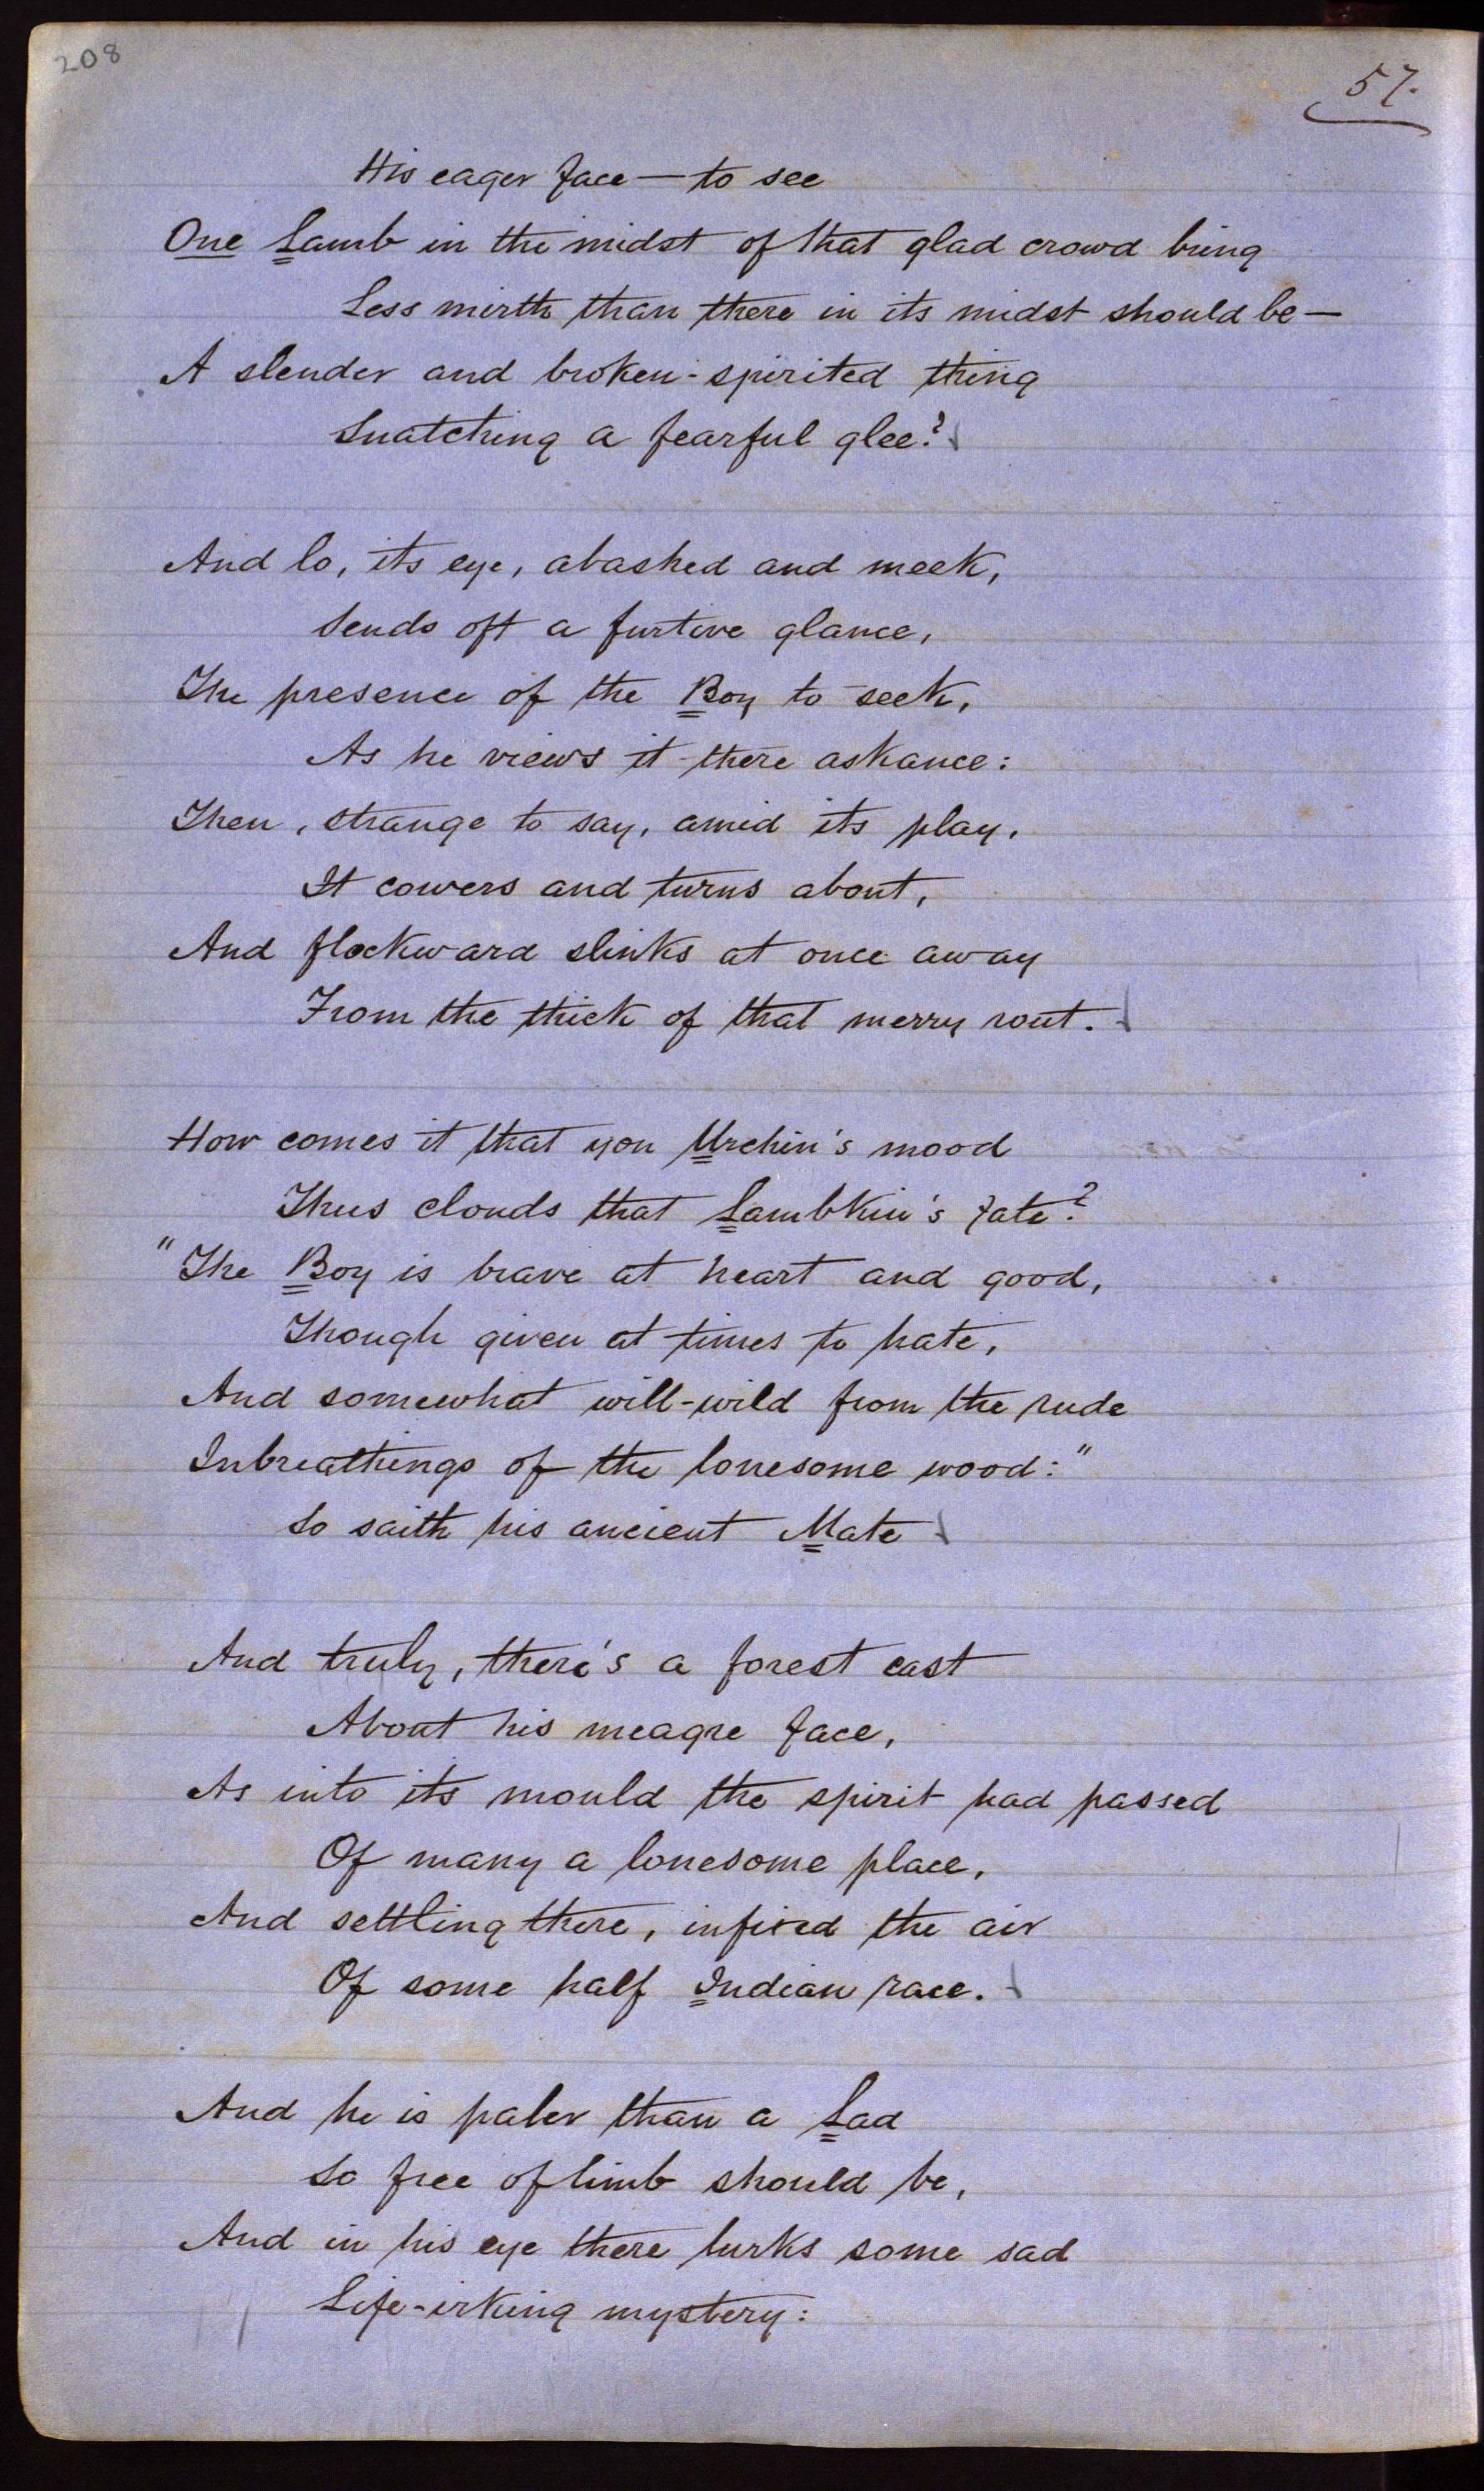 208
57.
His eager face—to see
One Lamb in the midst of that glad crowd bring
Less mirth than there in its midst should be—
A slender and broken-spirited thing
Snatching a fearful glee?
And lo, its eye, abashed and meek,
Sends oft a furtive glance,
The presence of the Boy to seek,
As he views it there askance:
Then, strange to say, amid its play,
It cowers and turns about,
And flockward slinks at once away
From the thick of that merry rout.
How comes it that yon Urchin's mood
Thus clouds that Lambkin's fate?
"The Boy is brave at heart and good,
Though given at times to hate,
And somewhat will-wild from the rude
Inbreathings of the lonesome wood:"
So saith his ancient Mate
And truly, there's a forest cast
About his meagre face,
As into its mould the spirit had passed
Of many a lonesome place,
And settling there, infixed the air
Of some half Indian race.
And he is paler than a Lad
So free of limb should be,
And in his eye there lurks some sad
Life-irking mystery: